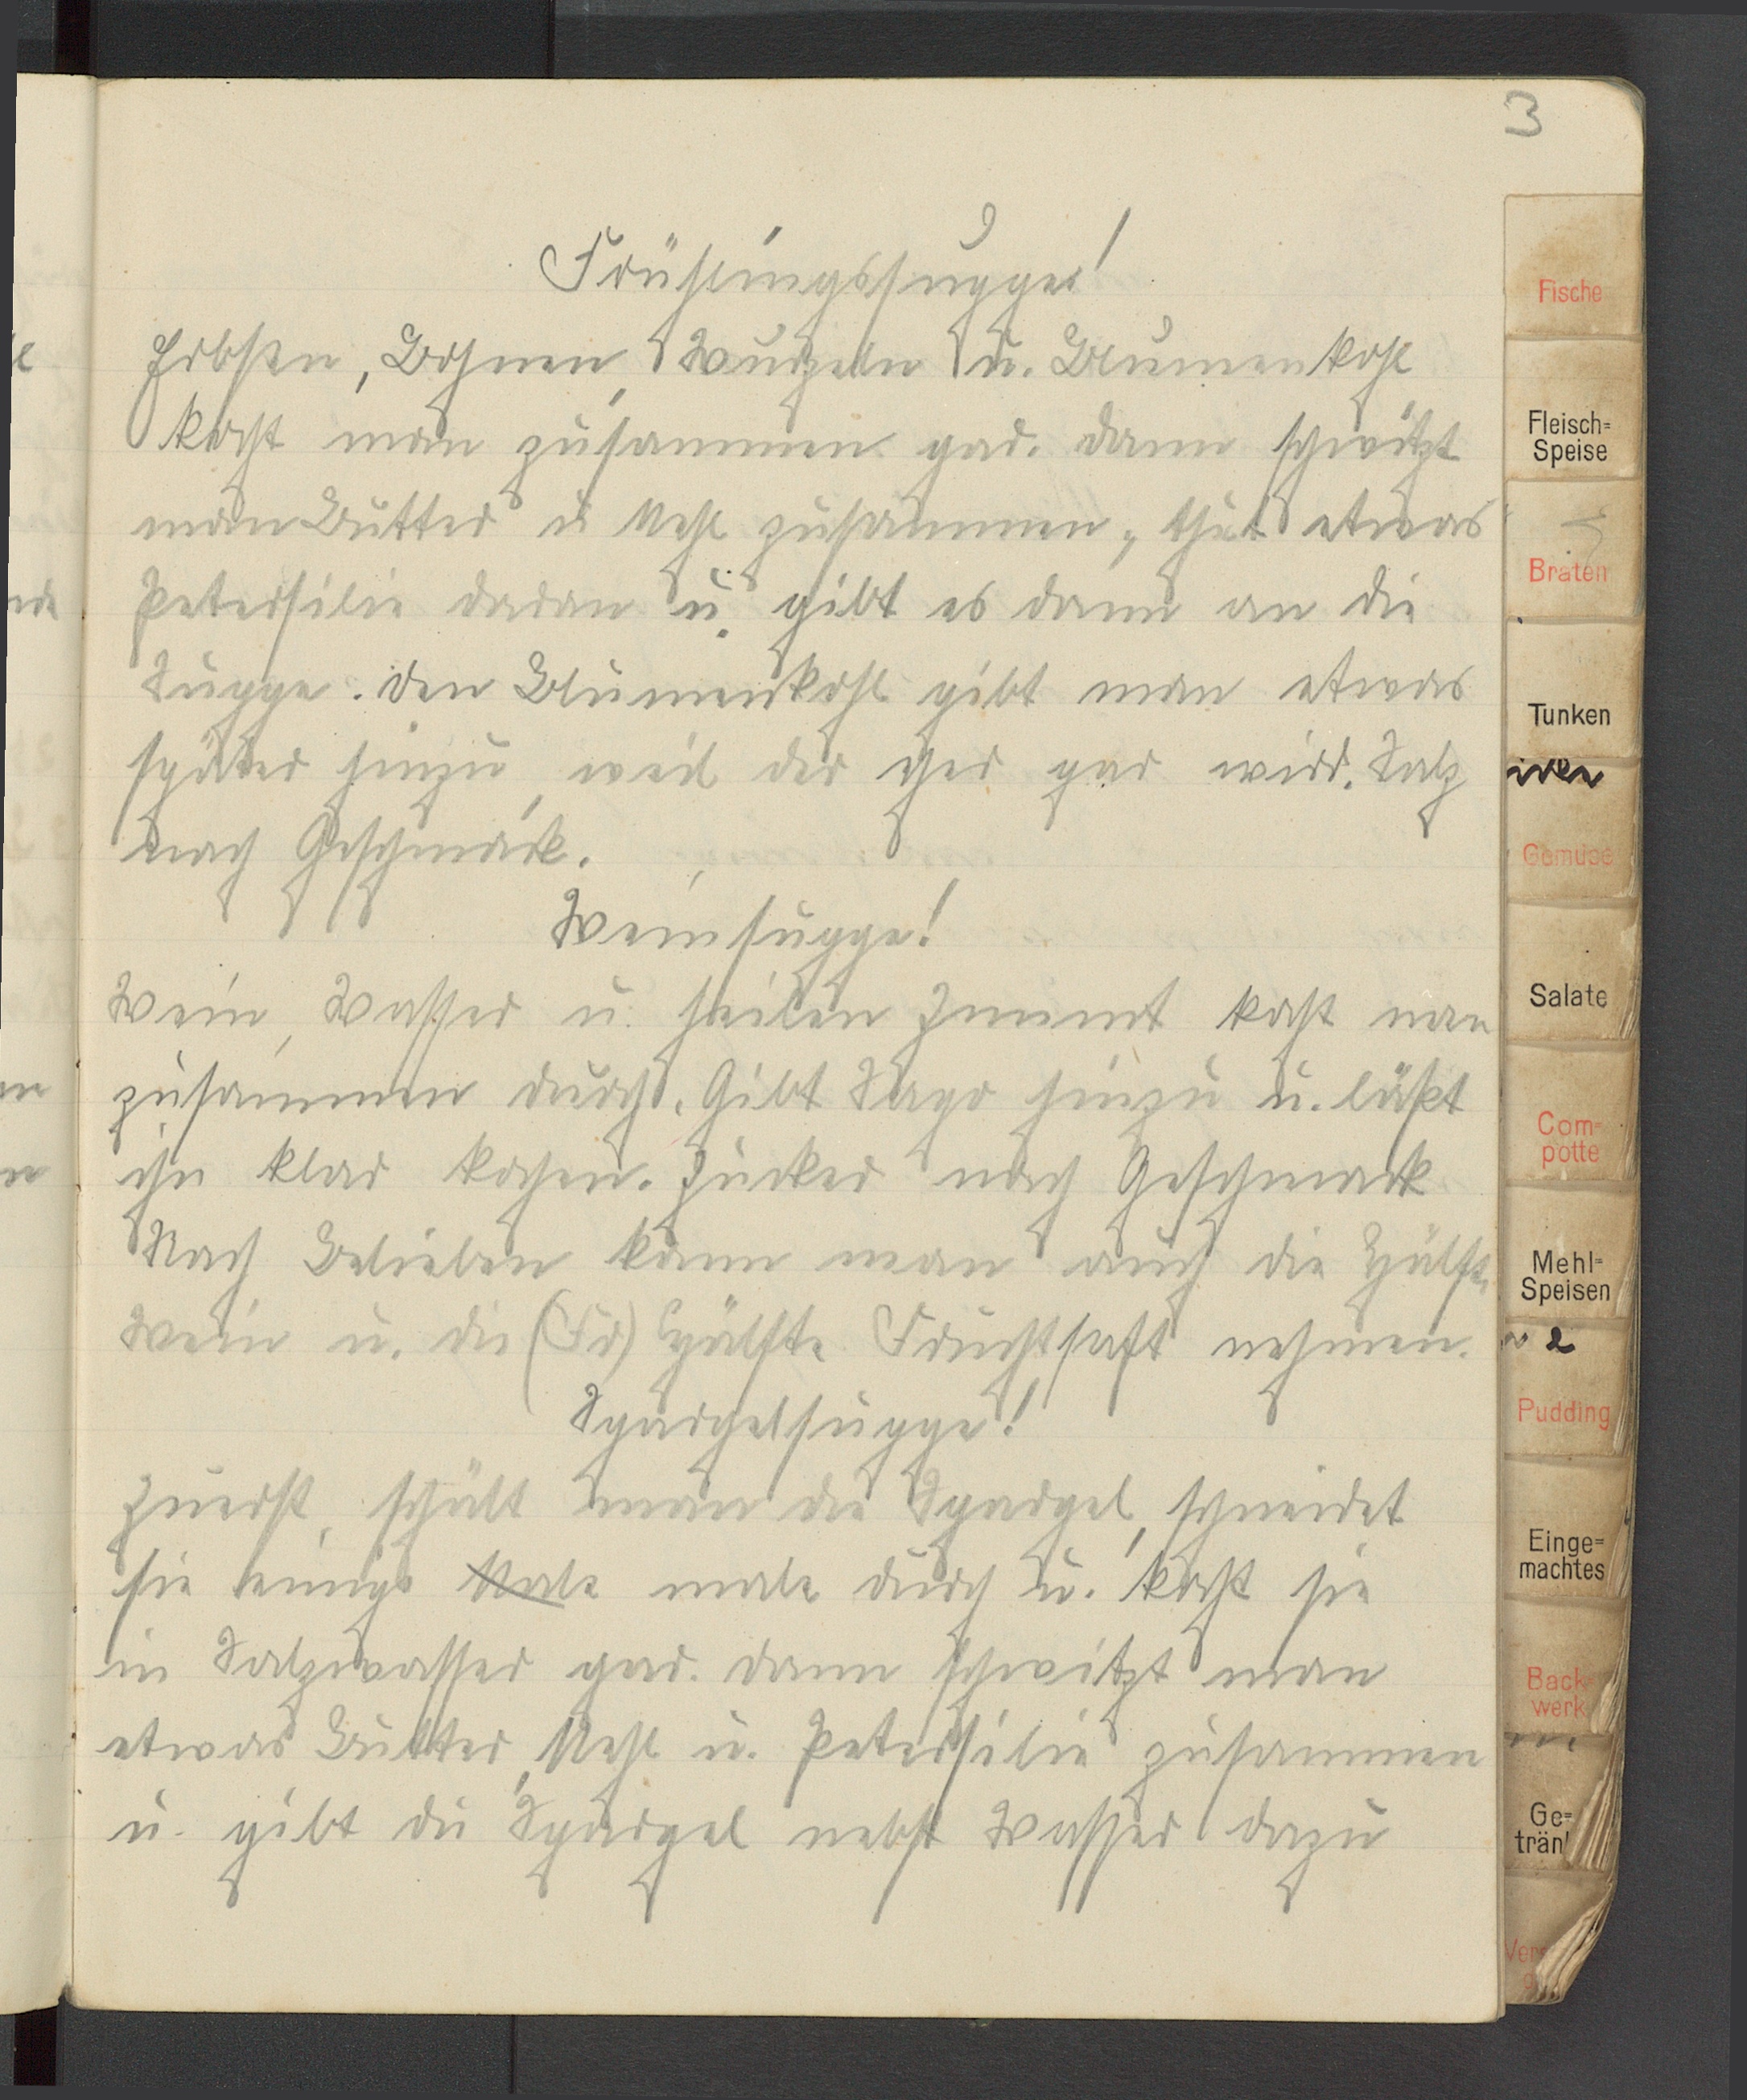 3
Frühlingssuppe!
Erbsen, Bohnen, Wurzeln u. Blumenkohl
kocht man zusammen gar. Dann schwitzt
man Butter u Mehl zusammen, thut etwas
Petersilie daran u. gibt es dann an die
Suppe. Den Blumenkohl gibt man etwas
später hinzu, weil der eher gar wird. Salz
nach Geschmack.
Weinsuppe!
Wein, Wasser u. heilen Zimmt kocht man
zusammen durch. Gibt Sago hinzu u. läßt
ihn klar kochen. Zucker nach Geschmack
Nach Belieben kann man auch die Hälfte
Wein u. die (Fr) Hälfte Fruchtsaft nehmen.
Spargelsuppe!
Zuerst, schält man die Spargel, schneidet
sie einige Male male durch u. kocht sie
in Salzwasser gar. Dann schwitzt man
etwas Butter, Mehl u. Petersilie zusammen
u. gibt die Spargel nebst Wasser dazu
Fische
Fleisch=
Speise
Braten
Tunken
Gemüse
Salate
Com=
potte
Mehl=
Speisen
Pudding
Einge=
machtes
Back
werk
Ge=
trän